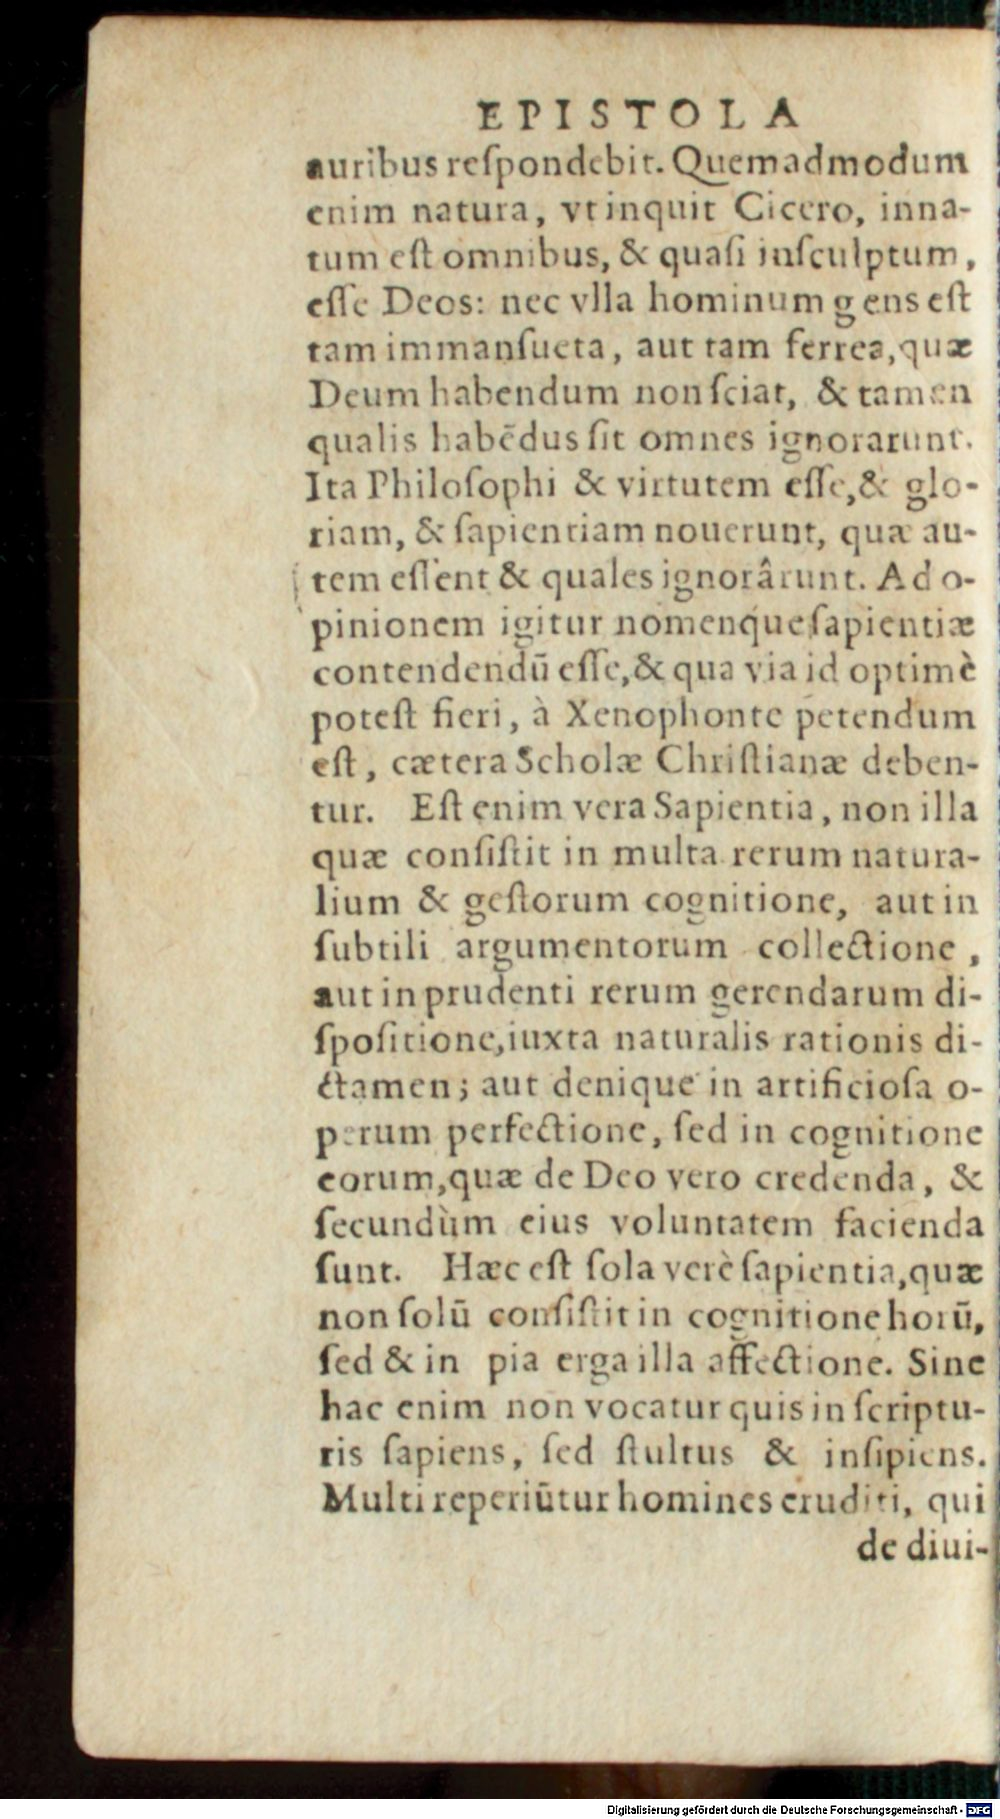 EPISTOLA
auribus reſpondebit. Quemadmodum
enim natura, vt inquit Cicero, inna-
tum eſt omnibus, & quaſi inſculptum,
eſſe Deos: nec vlla hominum gens eſt
tam immanſueta, aut tam ferrea, quæ
Deum habendum non ſciat, & tamen
qualis habēdus ſit omnes ignorarunt.
Ita Philoſophi & virtutem eſſe, & glo-
riam, & ſapientiam nouerunt, quæ au-
tem eſſent & quales ignorârunt. Ad o-
pinionem igitur nomenque ſapientiæ
contendendū eſſe, & qua via id optimè
poteſt fieri, à Xenophonte petendum
eſt, cætera Scholæ Chriſtianæ deben-
tur. Eſt enim vera Sapientia, non illa
quæ conſiſtit in multa rerum natura-
lium & geſtorum cognitione, aut in
ſubtili argumentorum collectione,
aut in prudenti rerum gerendarum di-
ſpoſitione, iuxta naturalis rationis di-
ctamen; aut denique in artificioſa o-
perum perfectione, ſed in cognitione
eorum, quæ de Deo vero credenda, &
ſecundùm eius voluntatem facienda
ſunt. Hæc eſt ſola verè ſapientia, quæ
non ſolū conſiſtit in cognitione horū,
ſed & in pia erga illa affectione. Sine
hac enim non vocatur quis in ſcriptu-
ris ſapiens, ſed ſtultus & inſipiens.
Multi reperiūtur homines eruditi, qui
de diui-
Digitalisierung gefördert durch die Deutsche Forschungsgemeinschaft - DFG